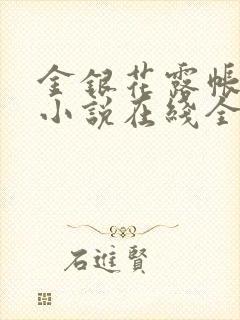 金銀花露帳
小說在綫全
石進賢